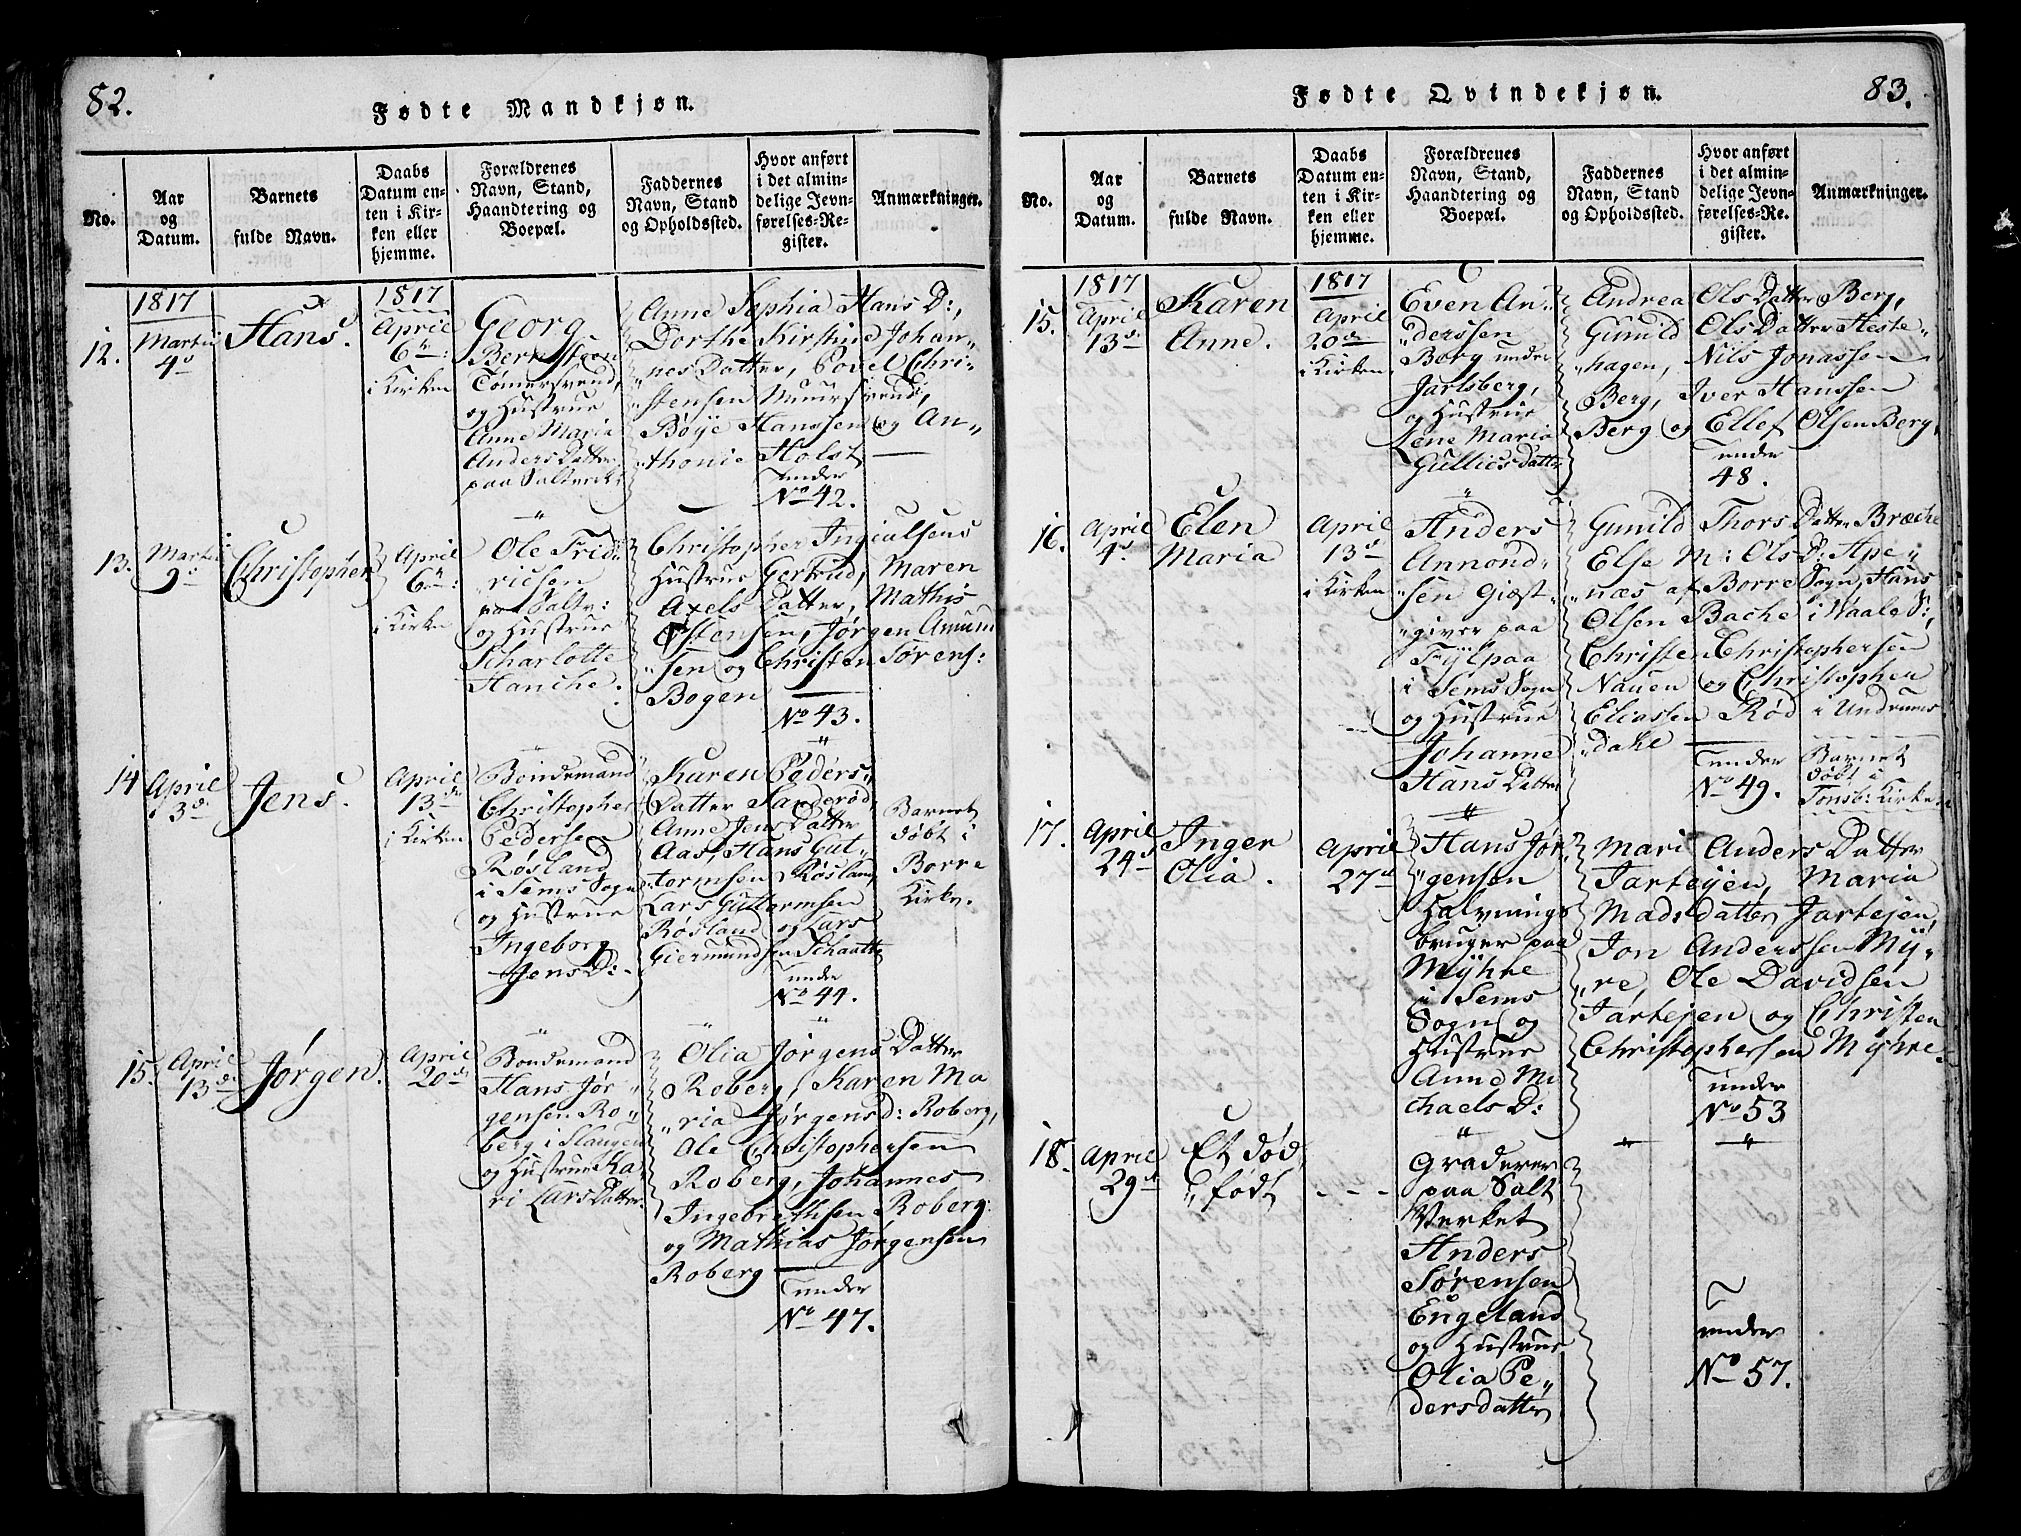 82.
Fødte Mandkjøn.
No.
Aar
og
Datum.
Barnets
fulde Navn.
Daabs
Datum en-
ten i Kir-
ken eller
hjemme.
Forældrenes
Navn, Stand,
Haandtering og
Boepæl.
Faddernes
Navn, Stand
og Opholdssted.
Hvor anført
i det almin-
delige Jevn-
førelses-Re-
gister.
Anmærkninger.
12.
1817
Martii
4de
Hans.
1817
April
6te:
i Kirken
Georg
Tømersvend,
og Hustrue
Anne Maria
Anders Datter
paa Saltverk:
Anne Sophia Hans D:,
Dorthe Kirstine Johan„
„nes Datter, Povel Chri„
„stensen Muursvend,
Bøije Hanssen og An„
„thonie Holst
under
No 42.
13.
Martii
9de
Christopher
April
6te:
i Kirke
Ole Frid„
„ricsen
paa Saltv:
og Hustrue
Scharlotte
Hanche.
Christopher Ingiulsens
Hustrue Gertrud, Maren
Axels Datter, Mathis
Østensen, Jørgen Amund
„sen og Christen Sørens:
Bogen
No 43.
14
April
3de
Jens.
April
13de
i Kirken
Bondemand
Christopher
Pedersen
Røsland
i Sems Sogn
og Hustrue
Ingeborg
Jens D:
Karen Peders„
Datter Sanderød,
Anne Jens Datter
Aas, Hans Gut„
„tormsen Røsland,
Lars Guttormsen
Røsland og Lars
Giermundsen Schaatte
under
No 44.
Barnet
døbt i
Borre
Kirke.
15.
April
13de
Jørgen.
April
20de
Bondemand
Hans Jør„
gensen Ro„
berg i Slangen
og Hustrue Ka„
ri Lars Datter.
Olia Jørgens Datter
Roberg, Karen Ma
„ria Jørgensd: Roberg,
Ole Christophersen
Roberg, Johannes
Ingebrethsen Roberg:
og Mathias Jørgensen
Roberg
under
No 47.
83.
Fødte Qvindekjøn.
No.
Aar
og
Datum.
Barnets
fulde Navn.
Daabs
Datum en-
ten i Kir-
ken eller
hjemme.
Forældrenes
Navn, Stand,
Haandtering og
Boepæl.
Faddernes
Navn, Stand
og Opholdssted.
Hvor anført
i det almin-
delige Jevn-
førelses-Re-
gister.
Anmærkninger.
15.
1817
April
13de
Karen
Anne.
1817
April
20de
i Kirken
Even An„
„derssen
Berg under
Jarlsberg,
og Hustrue
Lene Maria
Gullics Datter
Andrea Ols Datter Berg,
Gunild Ols Datter Heste„
„hagen, Nils Jonassen
Berg, Iver Hanssen
Berg og Ellef Olsen Berg,
under
48.
16.
April
4de
Elen
Maria
April
13de
i Kirken
Anders
Annond„
„sen Giest„
„giver paa
Fylpaa
i Sems Sogn
og Hustrue
Johanne
Hans Datter
Gunild Thors Datter Bræche
Else M: Ols D: Ape„
„næs af Borre Sogn, Hans
Olsen Bache i Vaale S:,
Christen Christophersen
Nauen og Christopher
Eliassen Rød i Undrums
„dahl
under
No 49.
Barnet
døbt i
Tønsb: Kirke
17.
April
24de
Inger
Olia.
April
27de
Hans Jør„
„gensen
Halvnings
bruger paa
Myhre
i Sems
Sogn og
Hustrue
Anne Mi
chaels D:
Mari Anders Datter
Jartejen, Maria
Madsdatter Jartejen,
Jon Anderssen My„
„re, Ole Davidsen
Jartejen og Christen
Christophersen Myhre.
under
No 53
18.
April
29de
Et død„
„født
- - -
Graderer
paa Salt
Verket
Anders
Sørensen
Engeland
og Hustrue
Olia Pe„
dersdatter
under
No 57.